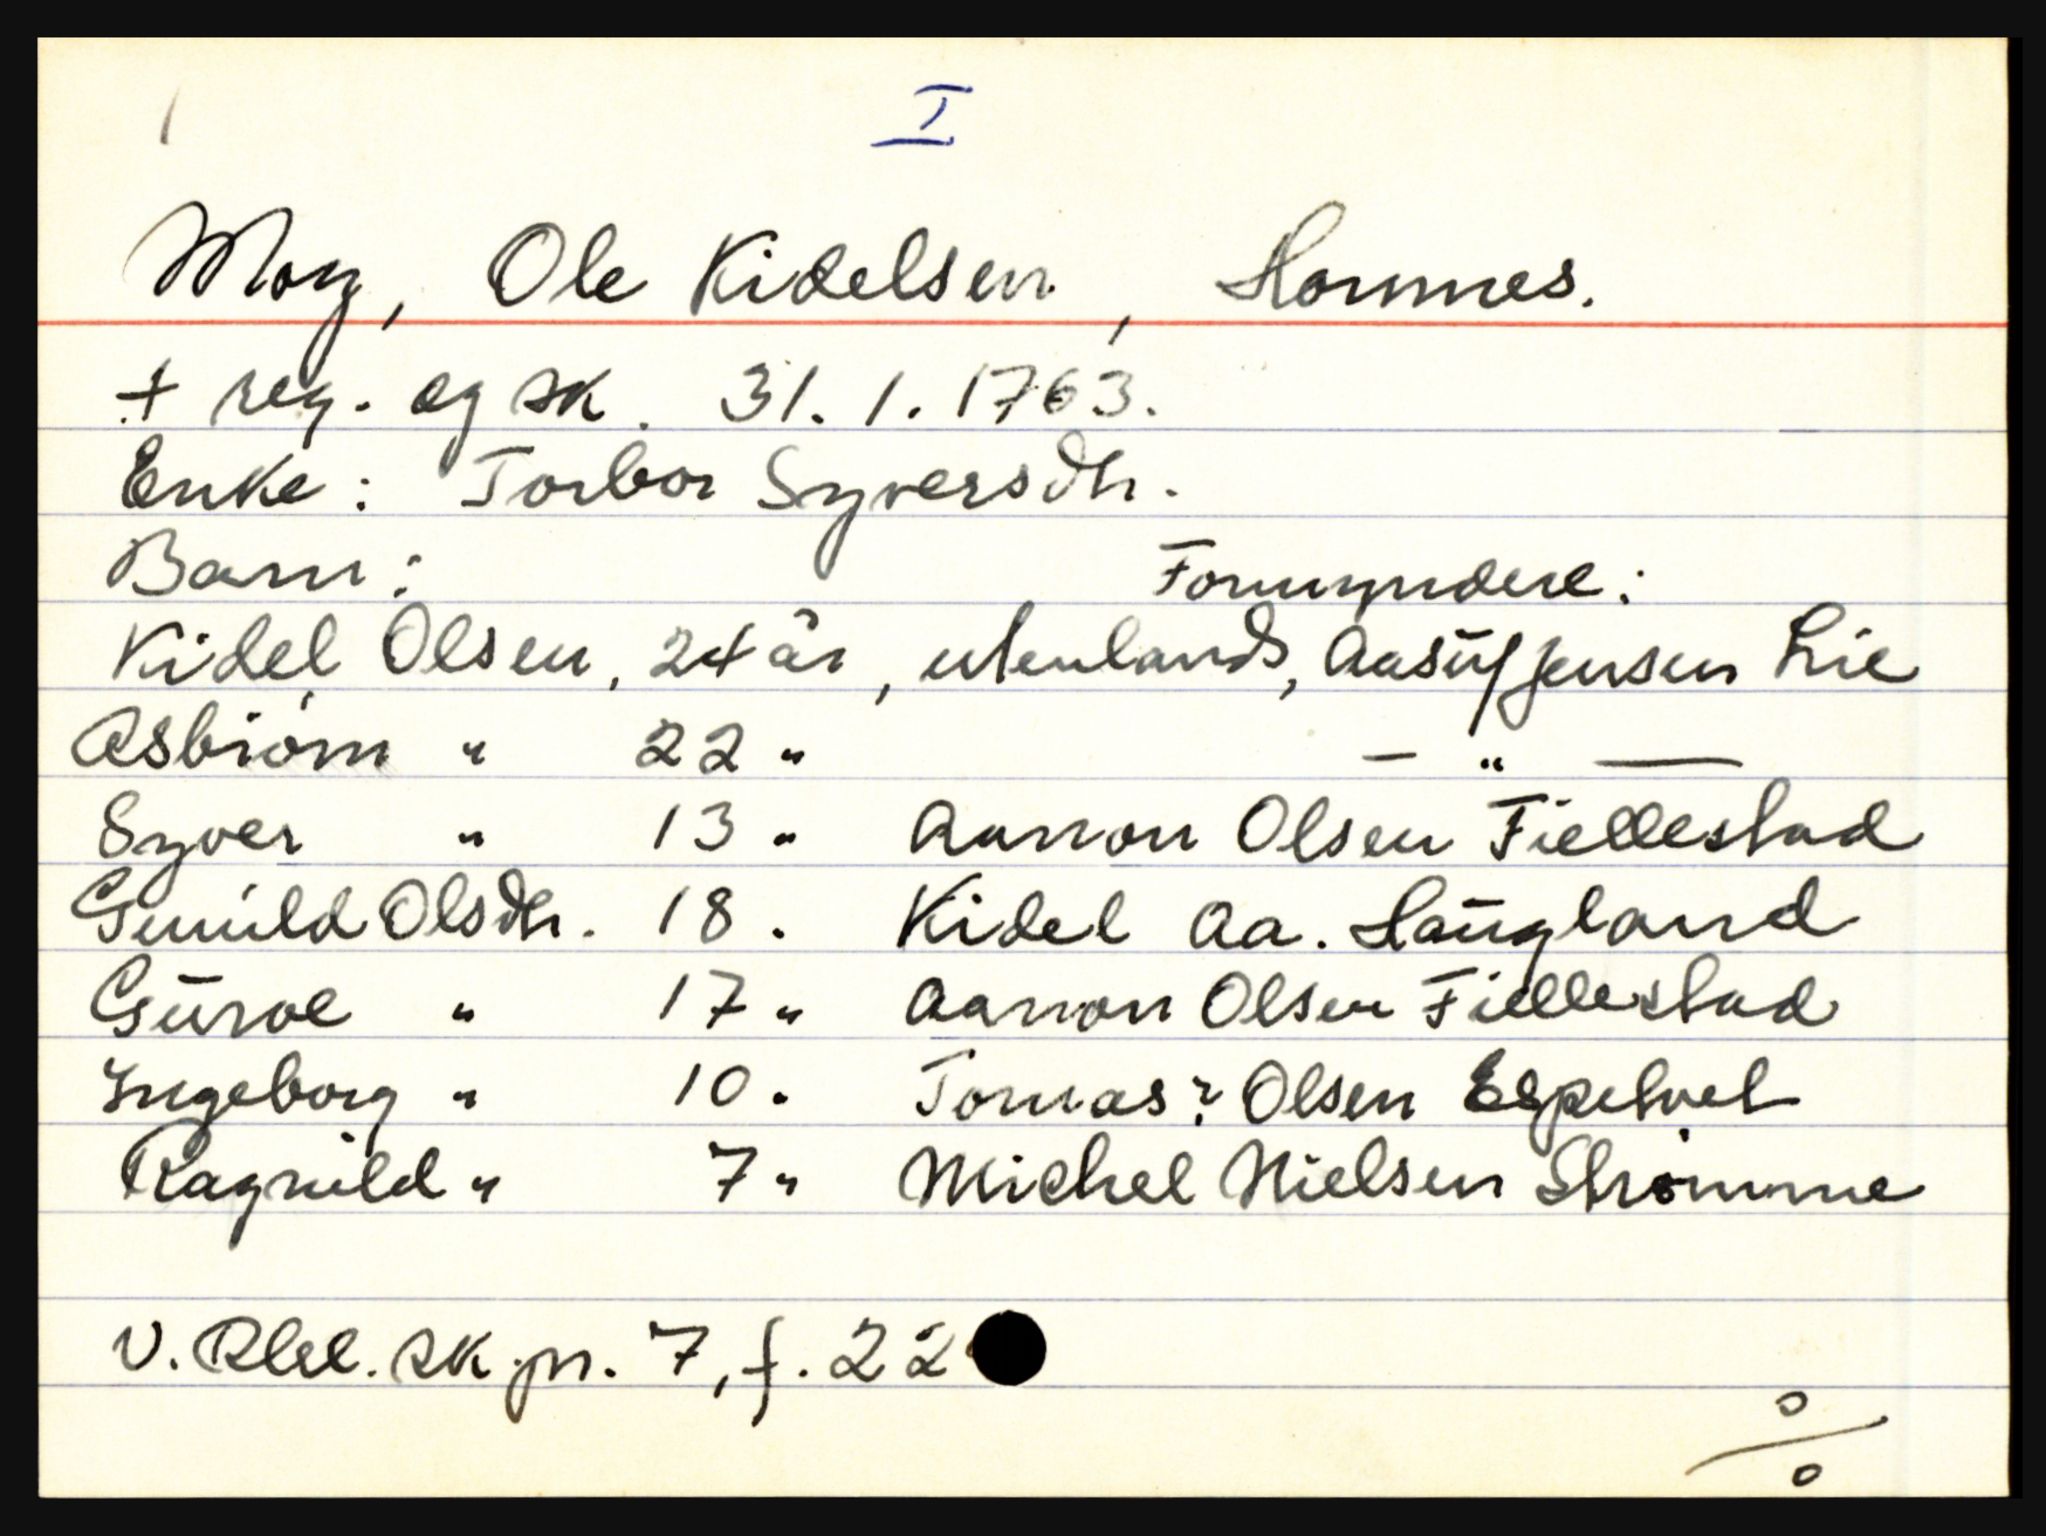 I
Moy, Ole Kidelsen, Hommes.
+ reg. og sk. 31.1.1763.
Enke: Torbor Syversdtr.
Barn: Formyndere:
Kidel Olsen, 24 år, utenlands, Aasūf Jensen Lie
Asbiørn " 22 " — " —
Syver " 13 " Aanon Olsen Fiellestad
Gunild Olsdtr. 18 . Kidel Aa. Haūgland
Gūroe " 17 " Aanon Olsen Fiellestad
Ingeborg " 10 . Tomas? Olsen Espetvet
Ragnild " 7 " Michel Nielsen Strømme
V. Rbl. sk.pr. 7, f. 22